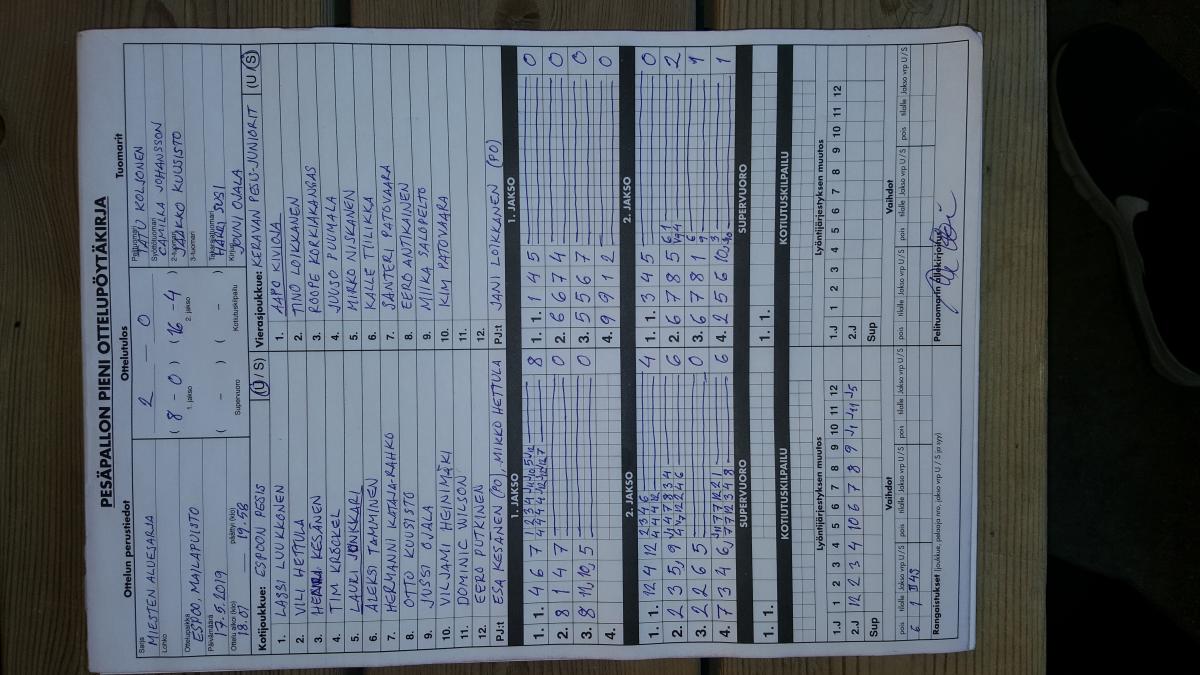 PESÄPALLON PIENI OTTELUPÖYTÄKIRJA
Ottelun perustiedot
Sarja
MIESTEN ALUESARJA
Lohko
Ottelupaikka
ESPOO, MAILAPUISTO
Päivämäärä
7.5.2019
Ottelu alkoi (klo) päättyi (klo)
18.01 19.58
Ottelutulos
2 — 0
( 8 - 0 ) ( 16 - 4 )
1. jakso 2. jakso
( - ) ( - )
Supervuoro Kotiutuskilpailu
Tuomarit
Pelituomari
TATU KOLJONEN
Syöttötuomari
CAMILLA JOHANSSON
2-tuomari
JAAKKO KUUSISTO
3-tuomari
Takarajatuomari
HARRI SUSI
JOUNI OJALA
Kotijoukkue: ESPOON PESIS (U / S)
1. LASSI LUUKKONEN
2. VILI HETTULA
3. KESÄNEN
4. TIM KRÖCKEL
5. LAURI JUNKKARI
6. ALEKSI TAMMINEN
7. HERMANNI KATAJA-RAHKO
8. OTTO KUUSISTO
9. JUSSI OJALA
10. VILJAMI HEINIMÄKI
11. DOMINIC WILSON
12. EERO PUTKINEN
PJ:t ESA KESÄNEN (PO), MIKKO HETTULA
Vierasjoukkue: KERAVAN PESU-JUNIORIT (U / S)
1. AAPO KIVILOJA
2. TINO LOIKKANEN
3. ROOPE KORKIAKANGAS
4. JUUSO PUUMALA
5. MIRKO NISKANEN
6. KALLE TIILIKKA
7. SANTERI PATOVAARA
8. EERO ANTIKAINEN
9. MIIKA SALOPELTO
10. KIM PATOVAARA
11.
12.
PJ:t JANI LOIKKANEN (PO)
1. JAKSO
1. 1. 4 6 7 8
2. 8 1 4 7 0
3. 8 11, 10, 5 0
4.
1. JAKSO
1. 1. 1 4 5 0
2. 6 6 7 4 0
3. 5 5 6 7 0
4. 9 9 1 2 0
2. JAKSO
1. 1. 12 4 12 4
2. 2 3 5, 9 6
3. 2 2 6 5 0
4. 7 3 4 6 6
2. JAKSO
1. 1. 1 3 4 5 0
2. 6 7 8 5 2
3. 6 7 8 1 1
4. 2 5 6 10, 1
SUPERVUORO
1. 1.
SUPERVUORO
1. 1.
KOTIUTUSKILPAILU
KOTIUTUSKILPAILU
Lyöntijärjestyksen muutos
1 2 3 4 5 6 7 8 9 10 11 12
1.J
2.J 12 2 3 4 10 6 7 8 9
Sup
Lyöntijärjestyksen muutos
1 2 3 4 5 6 7 8 9 10 11 12
1.J
2.J
Sup
Vaihdot
pois tilalle Jakso vrp U / S pois tilalle Jakso vrp U / S pois tilalle Jakso vrp U / S
6 1
Vaihdot
pois tilalle Jakso vrp U / S pois tilalle Jakso vrp U / S pois tilalle Jakso vrp U / S
Rangaistukset (joukkue, pelaaja nro, jakso vrp U / S ja syy)
Pelituomarin allekirjoitus